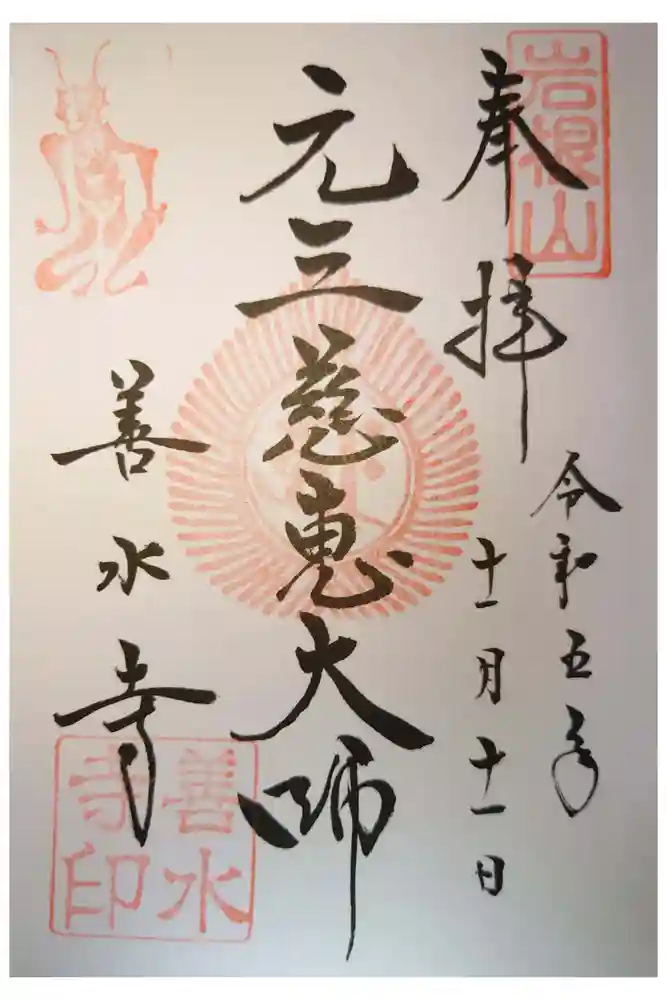 岩根山
奉拝
令和五年
十一月十一日
元三慈恵大師
善水寺
善水
寺印